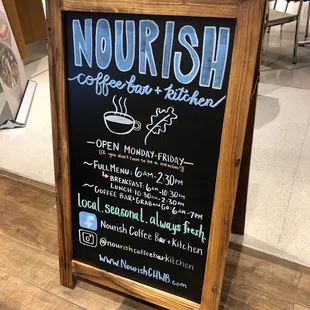 NOURISH
coffee bar + kitchen
OPEN MONDAY-FRIDAY
(& you don't have to be a member!)
~ FULL MENU: 6AM-2:30PM
↳ BREAKFAST: 6AM-10:30PM
LUNCH: 10:30-2:30PM
~ COFFEE BAR + GRAB and GO 6AM-7PM
local. seasonal. always fresh.
Nourish Coffee Bar + Kitchen
@nourishcoffeebarkitchen
www.NourishCHWB.com